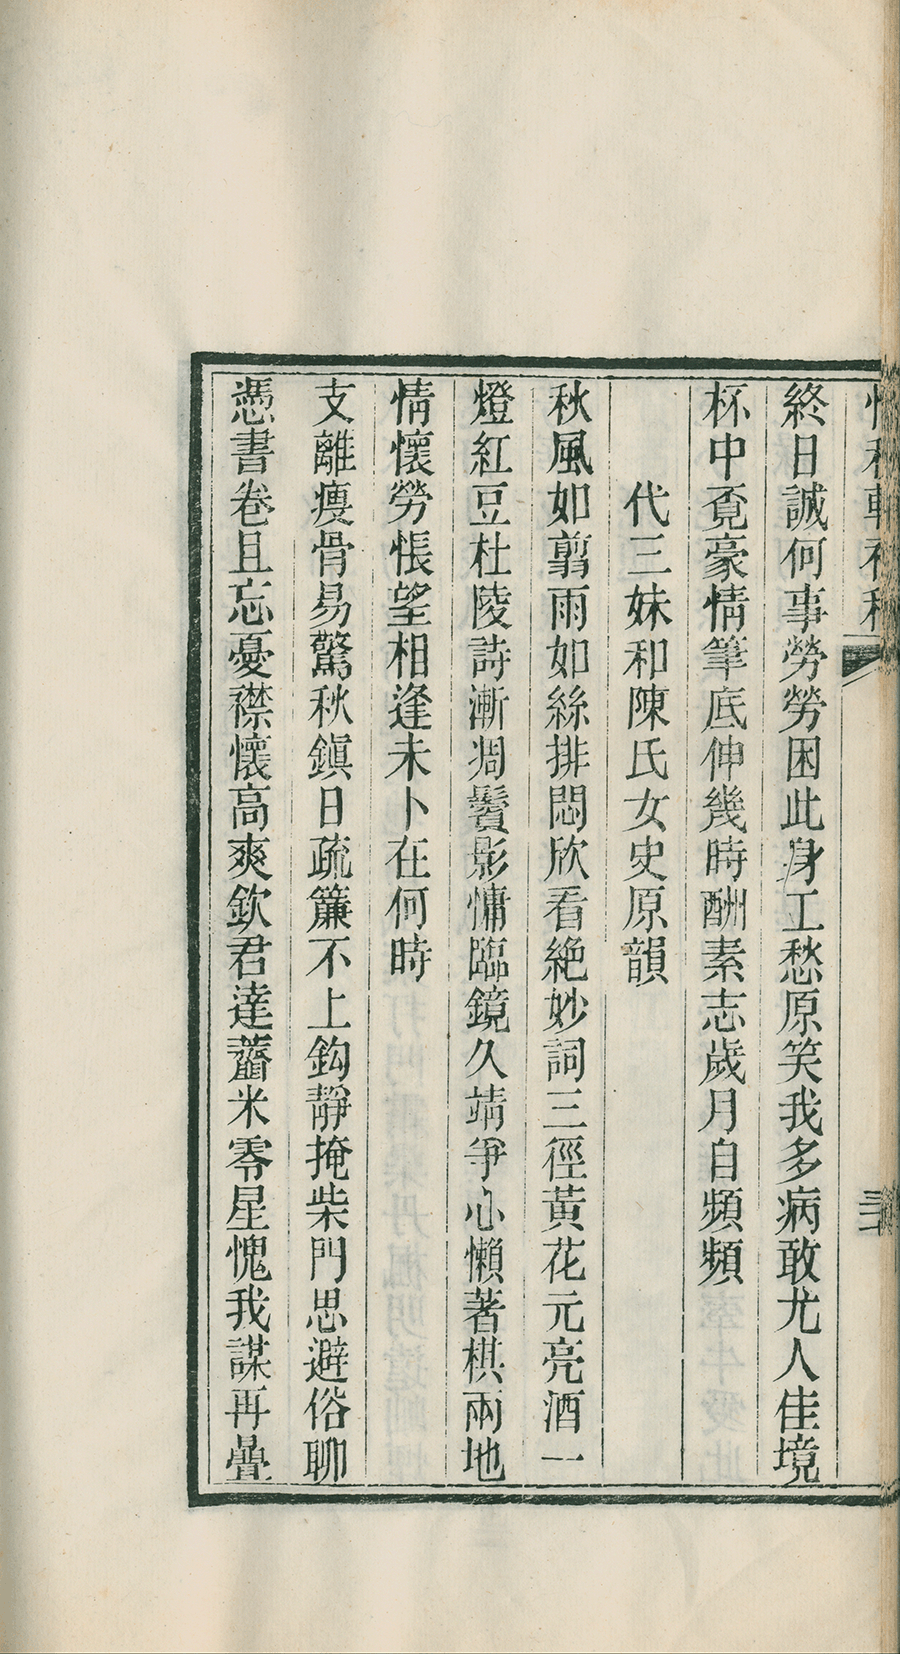 終日誠何事勞勞困此身工愁原笑我多病敢尤人佳境
杯中覔豪情筆底伸幾時酬素志歲月自頻頻
代三妹和陳氏女史原韻
秋風如翦雨如絲排悶欣看絶妙詞三徑黃花元亮酒一
燈紅豆杜陵詩漸凋鬢影慵臨鏡久靖爭心懶著棋兩地
情懷勞悵望相逢未卜在何時
支離瘦骨易驚秋鎭日疏簾不上鈎靜掩柴門思避俗聊
憑書卷且忘憂襟懷高爽欽君達虀米零星愧我謀再疊